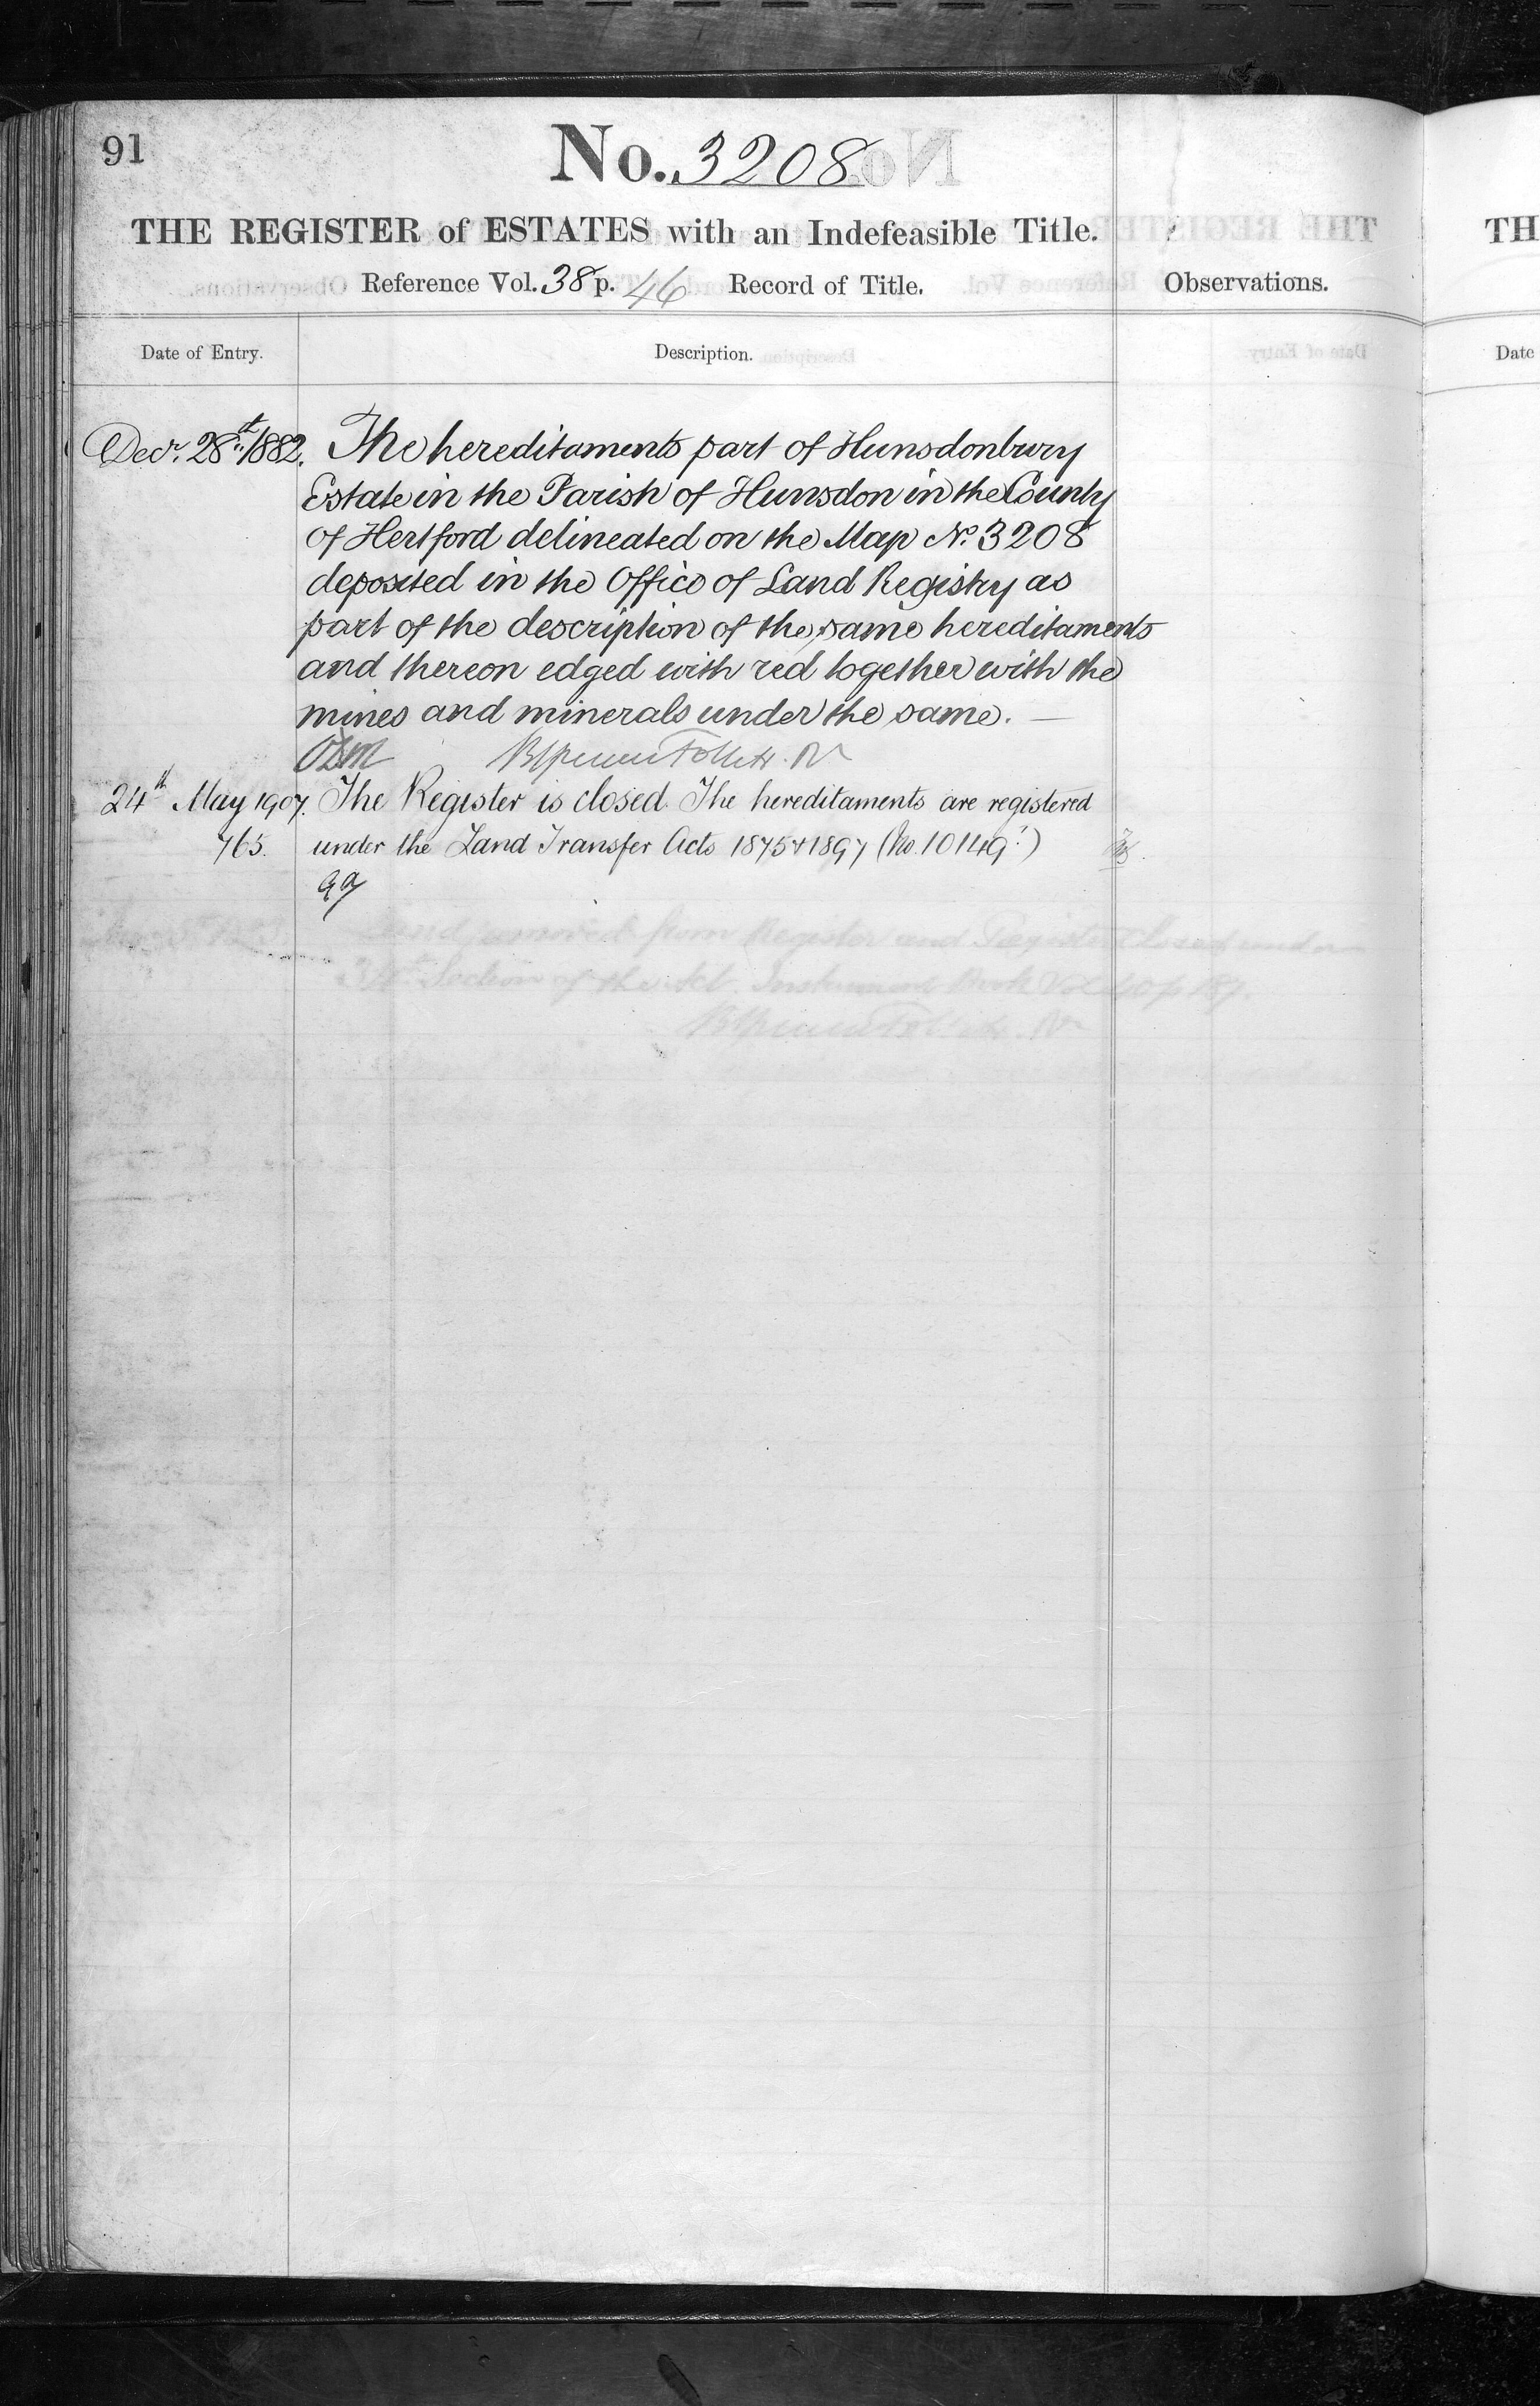 91
No. 3208
THE REGISTER of ESTATES with an Indefeasible Title.
Reference Vol. 38 p. 46 Record of Title.
Observations.
Date of Entry.
Description.
Decr. 28th 1882. The hereditaments part of Hunsdonbury
Estate in the Parish of Hunsdon in the County
of Hertford delineated on the Map No. 3208
deposited in the Office of Land Registry as
part of the description of the same hereditaments
and thereon edged with red together with the
mines and minerals under the same. —
24th May 1907. The Register is closed. The hereditaments are registered
765. under the Land Transfer Acts 1875 & 1897 (No. 10149)
TH
Date